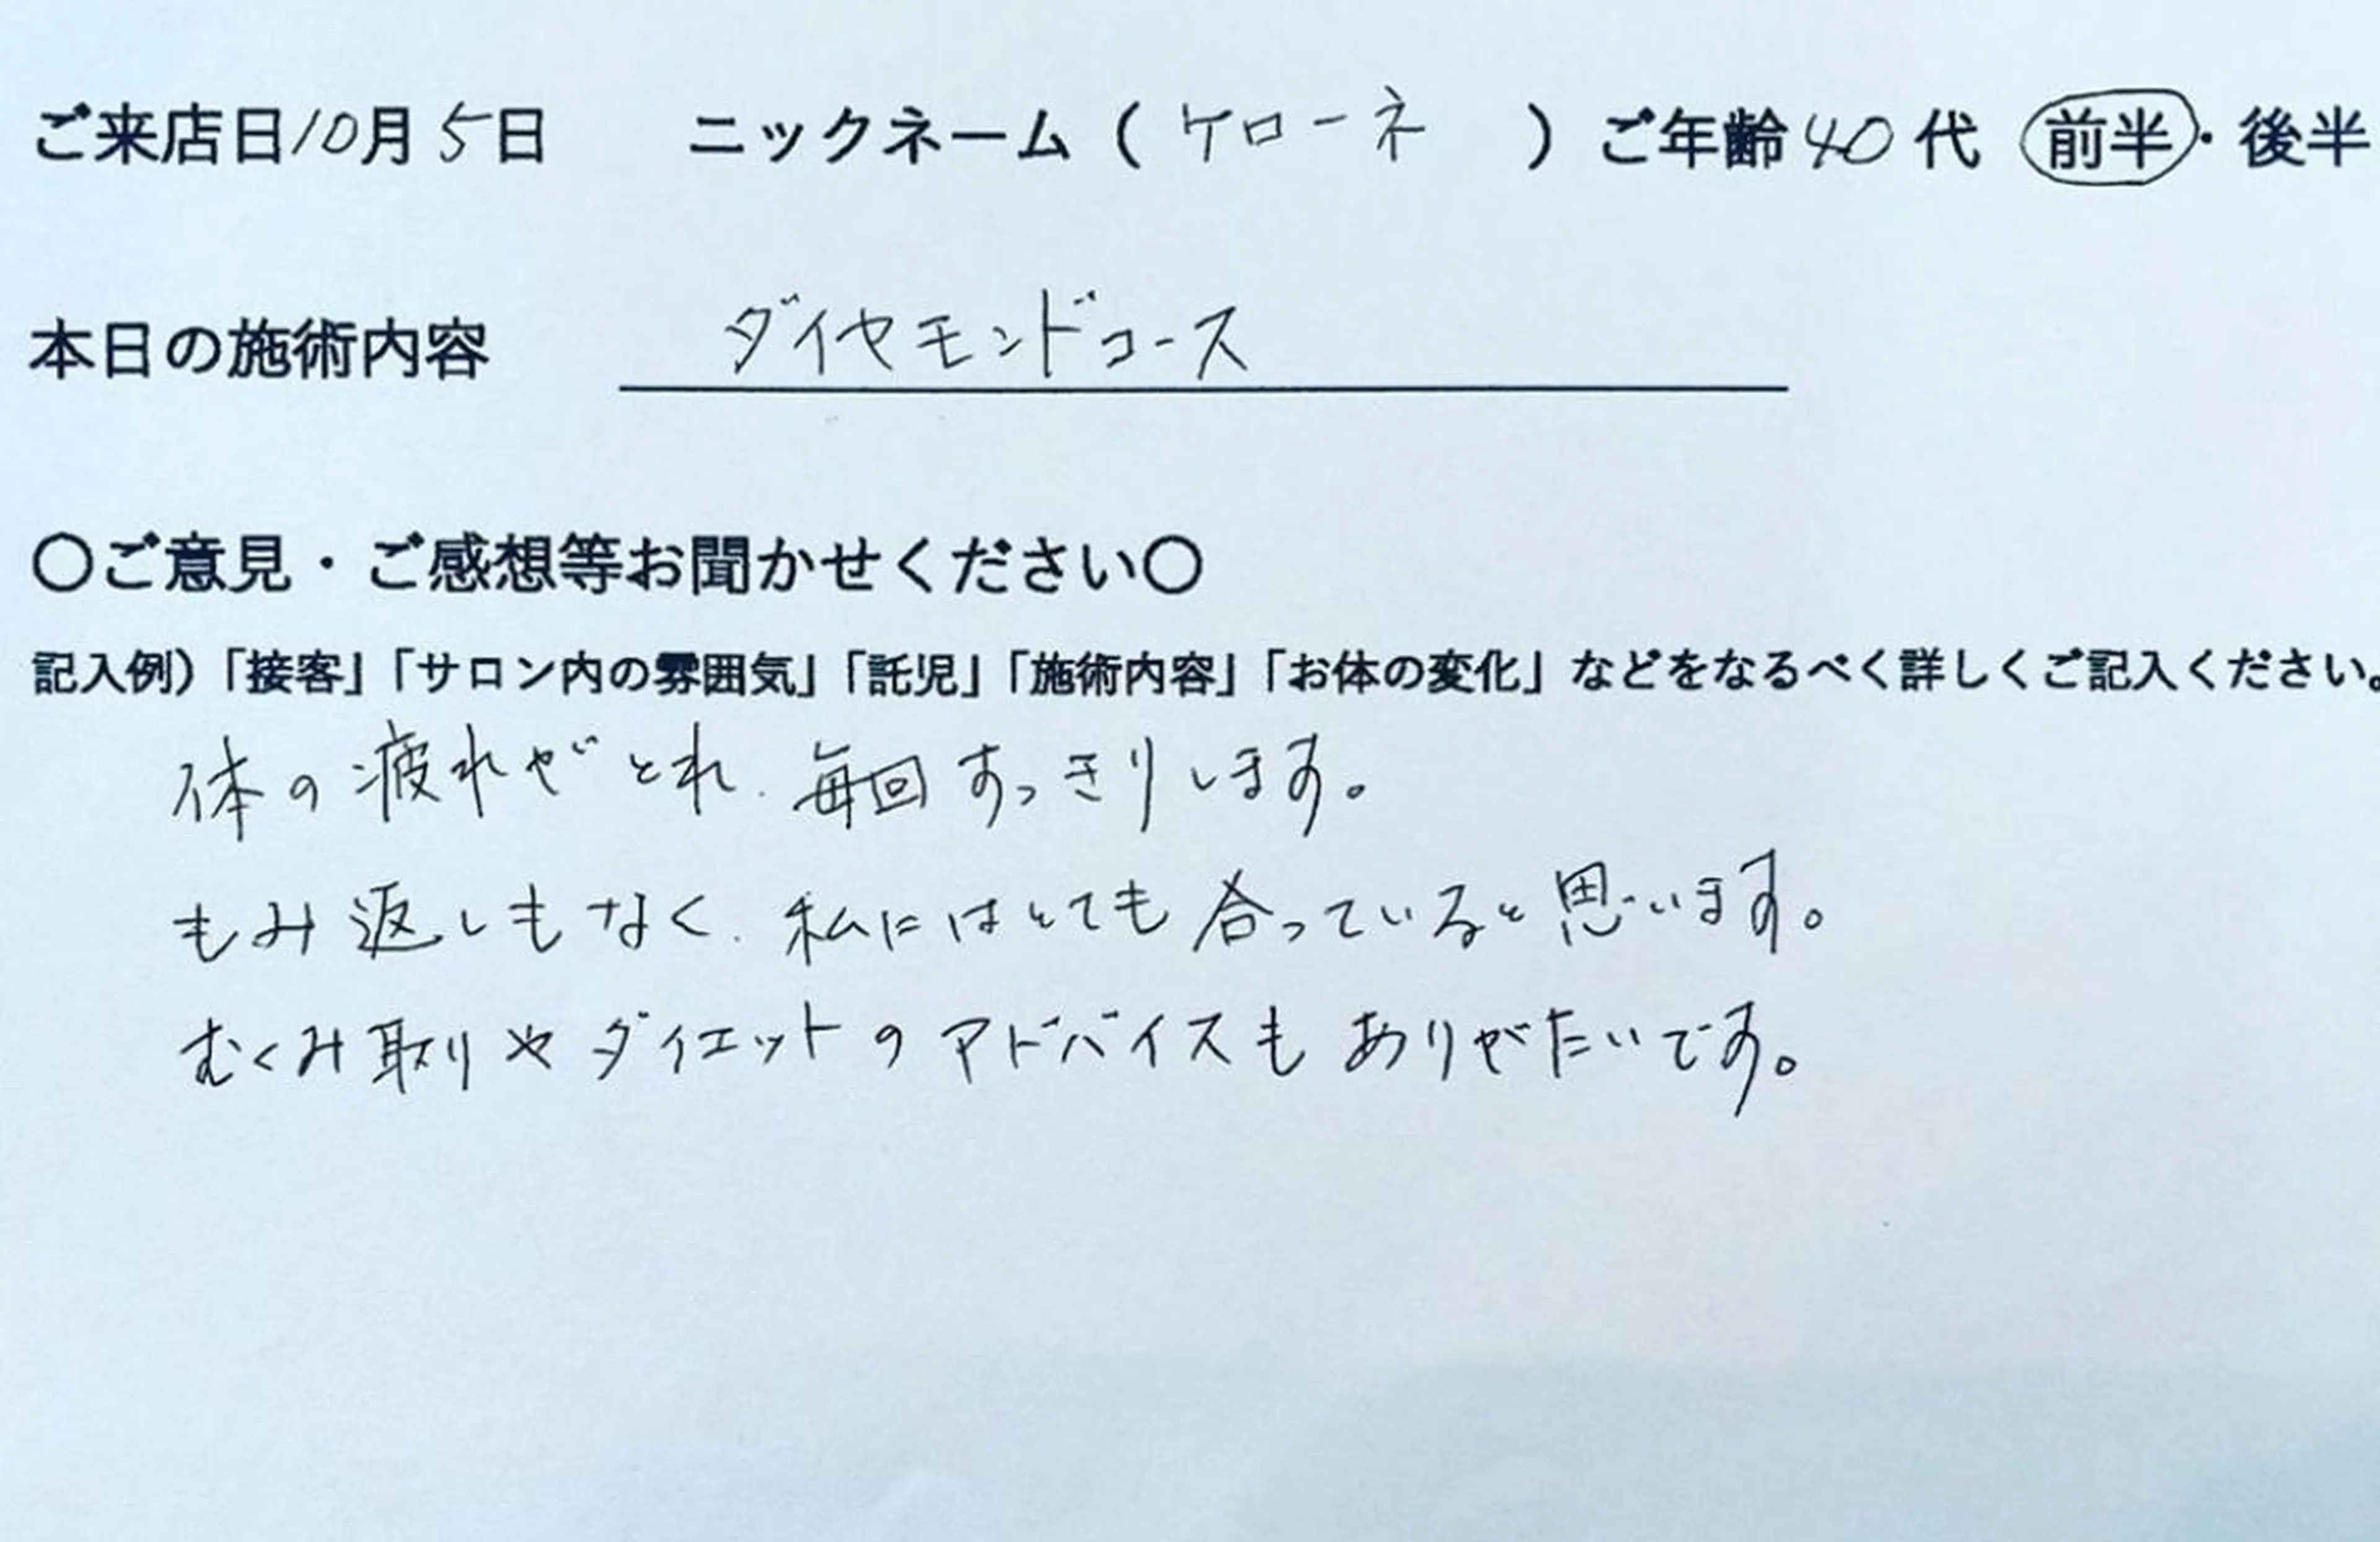 ご来店日10月5日　ニックネーム（ケローネ）ご年齢40代 前半・後半
本日の施術内容　ダイヤモンドコース
〇ご意見・ご感想等お聞かせください〇
記入例）「接客」「サロン内の雰囲気」「託児」「施術内容」「お体の変化」などをなるべく詳しくご記入ください。
体の疲れがとれ、毎回すっきりします。
もみ返しもなく、私にはとても合っていると思います。
むくみ取りやダイエットのアドバイスもありがたいです。